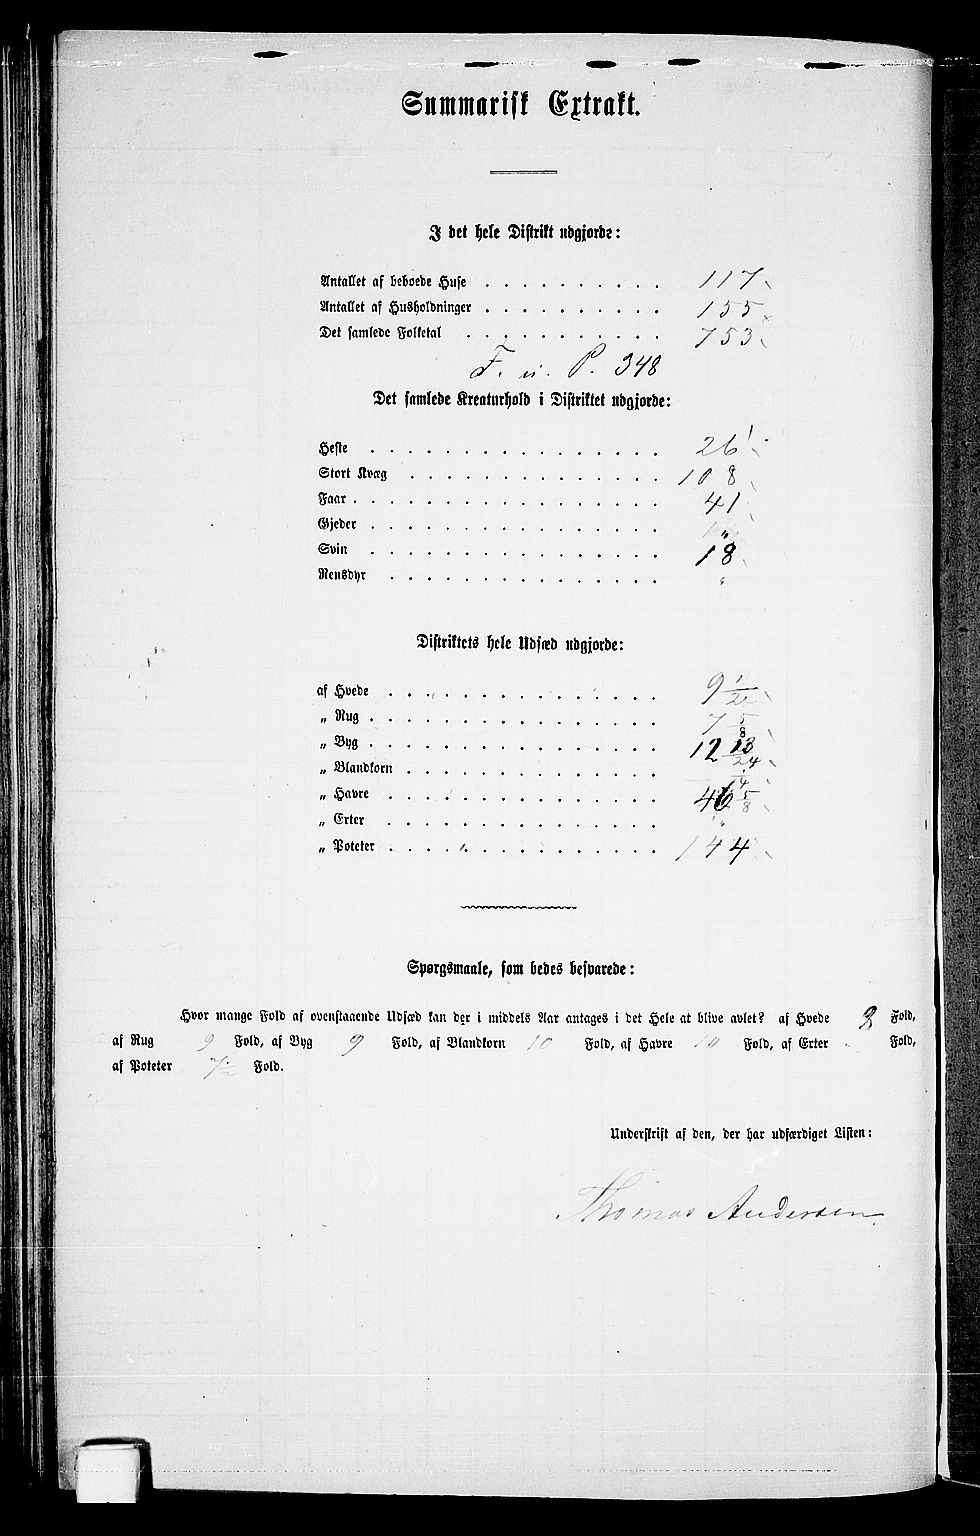 Summarisk Extrakt.
I det hele Distrikt udgjorde:
Antallet af beboede Huse . . . . . . . . . . . 117
Antallet af Husholdninger . . . . . . . . . . . 155
Det samlede Folketal . . . . . . . . . . . . 753
F. u. P. 348
Det samlede Kreaturhold i Distriktet udgjorde:
Heste . . . . . . . . . . . . . . . . . . 26
Stort Kvæg . . . . . . . . . . . . . . . . 108
Faar . . . . . . . . . . . . . . . . . . . 41
Gjeder . . . . . . . . . . . . . . . . . . "
Svin . . . . . . . . . . . . . . . . . . 18
Rensdyr . . . . . . . . . . . . . . . . . "
Distriktets hele Udsæd udgjorde:
af Hvede . . . . . . . . . . . . . . . . . 9 1/24
„ Rug . . . . . . . . . . . . . . . . . . 7 5/8
„ Byg . . . . . . . . . . . . . . . . . . 12 13/24
„ Blandkorn . . . . . . . . . . . . . . . . 1/4
„ Havre . . . . . . . . . . . . . . . . . 46 5/8
„ Erter . . . . . . . . . . . . . . . . . "
„ Poteter . . . . . . . . . . . . . . . . . 144
Spørgsmaale, som bedes besvarede:
Hvor mange Fold af ovenstaaende Udsæd kan der i middels Aar antages i det Hele at blive avlet? af Hvede 8 Fold,
af Rug 9 Fold, af Byg 9 Fold, af Blandkorn 10 Fold, af Havre 10 Fold, af Erter Fold,
af Poteter 7 Fold.
Underskrift af den, der har udfærdiget Listen:
Thomas Andersen